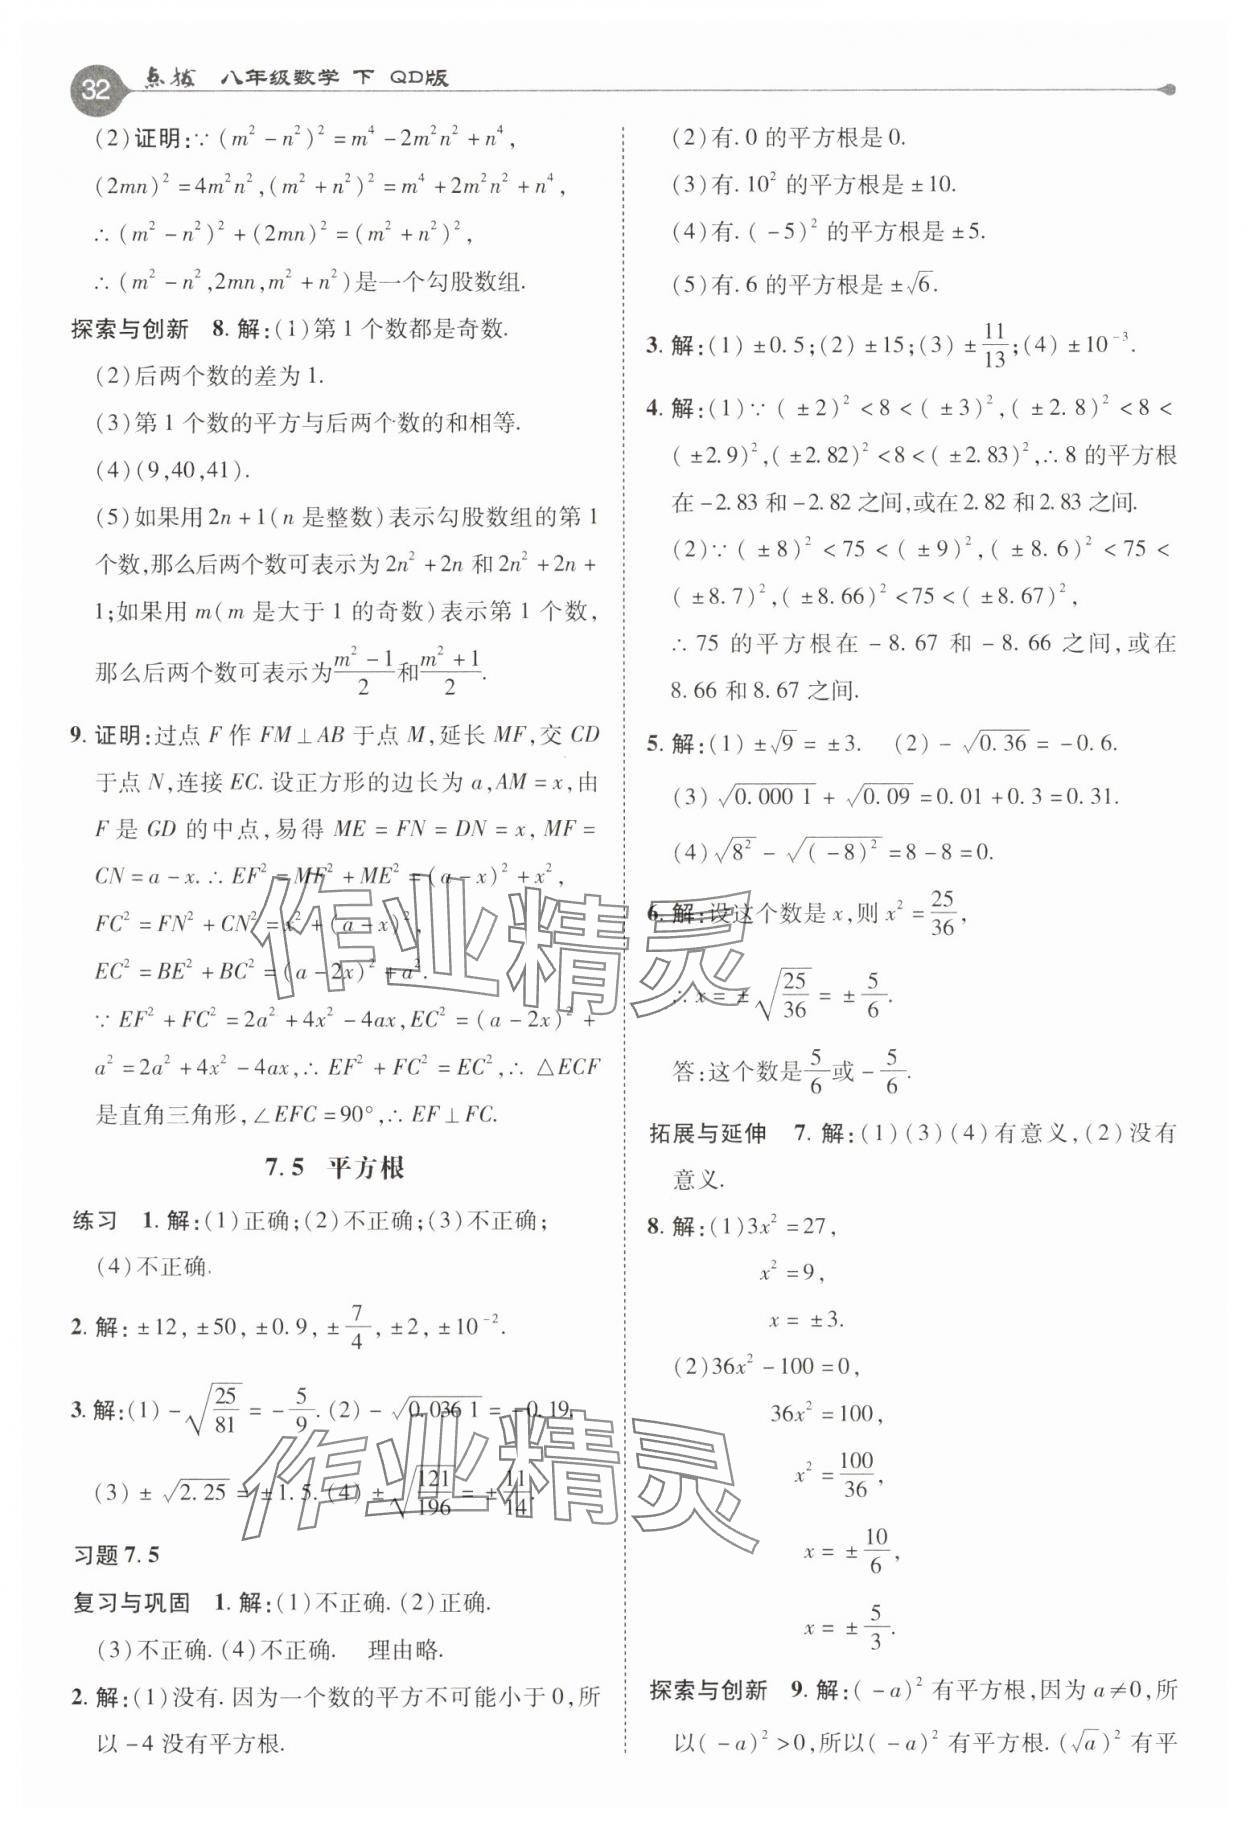 32 点拨 八年级数学 下 QD版
(2)证明:∵(m²-n²)²=m⁴-2m²n²+n⁴,
(2mn)²=4m²n²,(m²+n²)²=m⁴+2m²n²+n⁴,
∴(m²-n²)²+(2mn)²=(m²+n²)²,
∴(m²-n²,2mn,m²+n²)是一个勾股数组.
探索与创新 8.解:(1)第1个数都是奇数.
(2)后两个数的差为1.
(3)第1个数的平方与后两个数的和相等.
(4)(9,40,41).
(5)如果用2n+1(n是整数)表示勾股数组的第1
个数,那么后两个数可表示为2n²+2n和2n²+2n+
1;如果用m(m是大于1的奇数)表示第1个数,
那么后两个数可表示为(m²-1)/2和(m²+1)/2.
9.证明:过点F作FM⊥AB于点M,延长MF,交CD
于点N,连接EC.设正方形的边长为a,AM=x,由
F是GD的中点,易得ME=FN=DN=x,MF=
CN=a-x.∴EF²=MF²+ME²=(a-x)²+x²,
FC²=FN²+CN²=x²+(a-x)²,
EC²=BE²+BC²=(a-2x)²+a².
∵EF²+FC²=2a²+4x²-4ax,EC²=(a-2x)²+
a²=2a²+4x²-4ax,∴EF²+FC²=EC²,∴△ECF
是直角三角形,∠EFC=90°,∴EF⊥FC.
7.5 平方根
练习 1.解:(1)正确;(2)不正确;(3)不正确;
(4)不正确.
2.解:±12,±50,±0.9,±7/4,±2,±10⁻².
3.解:(1)-√(25/81)=-5/9.(2)-√0.0361=-0.19.
(3)±√2.25=±1.5.(4)±√(121/196)=±11/14.
习题7.5
复习与巩固 1.解:(1)不正确.(2)正确.
(3)不正确.(4)不正确. 理由略.
2.解:(1)没有.因为一个数的平方不可能小于0,所
以-4没有平方根.
(2)有.0的平方根是0.
(3)有.10²的平方根是±10.
(4)有.(-5)²的平方根是±5.
(5)有.6的平方根是±√6.
3.解:(1)±0.5;(2)±15;(3)±11/13;(4)±10⁻³.
4.解:(1)∵(±2)²<8<(±3)²,(±2.8)²<8<
(±2.9)²,(±2.82)²<8<(±2.83)²,∴8的平方根
在-2.83和-2.82之间,或在2.82和2.83之间.
(2)∵(±8)²<75<(±9)²,(±8.6)²<75<
(±8.7)²,(±8.66)²<75<(±8.67)²,
∴75的平方根在-8.67和-8.66之间,或在
8.66和8.67之间.
5.解:(1)±√9=±3. (2)-√0.36=-0.6.
(3)√0.0001+√0.09=0.01+0.3=0.31.
(4)√8²-√(-8)²=8-8=0.
6.解:设这个数是x,则x²=25/36,
∴x=±√(25/36)=±5/6.
答:这个数是5/6或-5/6.
拓展与延伸 7.解:(1)(3)(4)有意义,(2)没有
意义.
8.解:(1)3x²=27,
x²=9,
x=±3.
(2)36x²-100=0,
36x²=100,
x²=100/36,
x=±10/6,
x=±5/3.
探索与创新 9.解:(-a)²有平方根,因为a≠0,所
以(-a)²>0,所以(-a)²有平方根.(√a)²有平
作业精灵
作业精灵